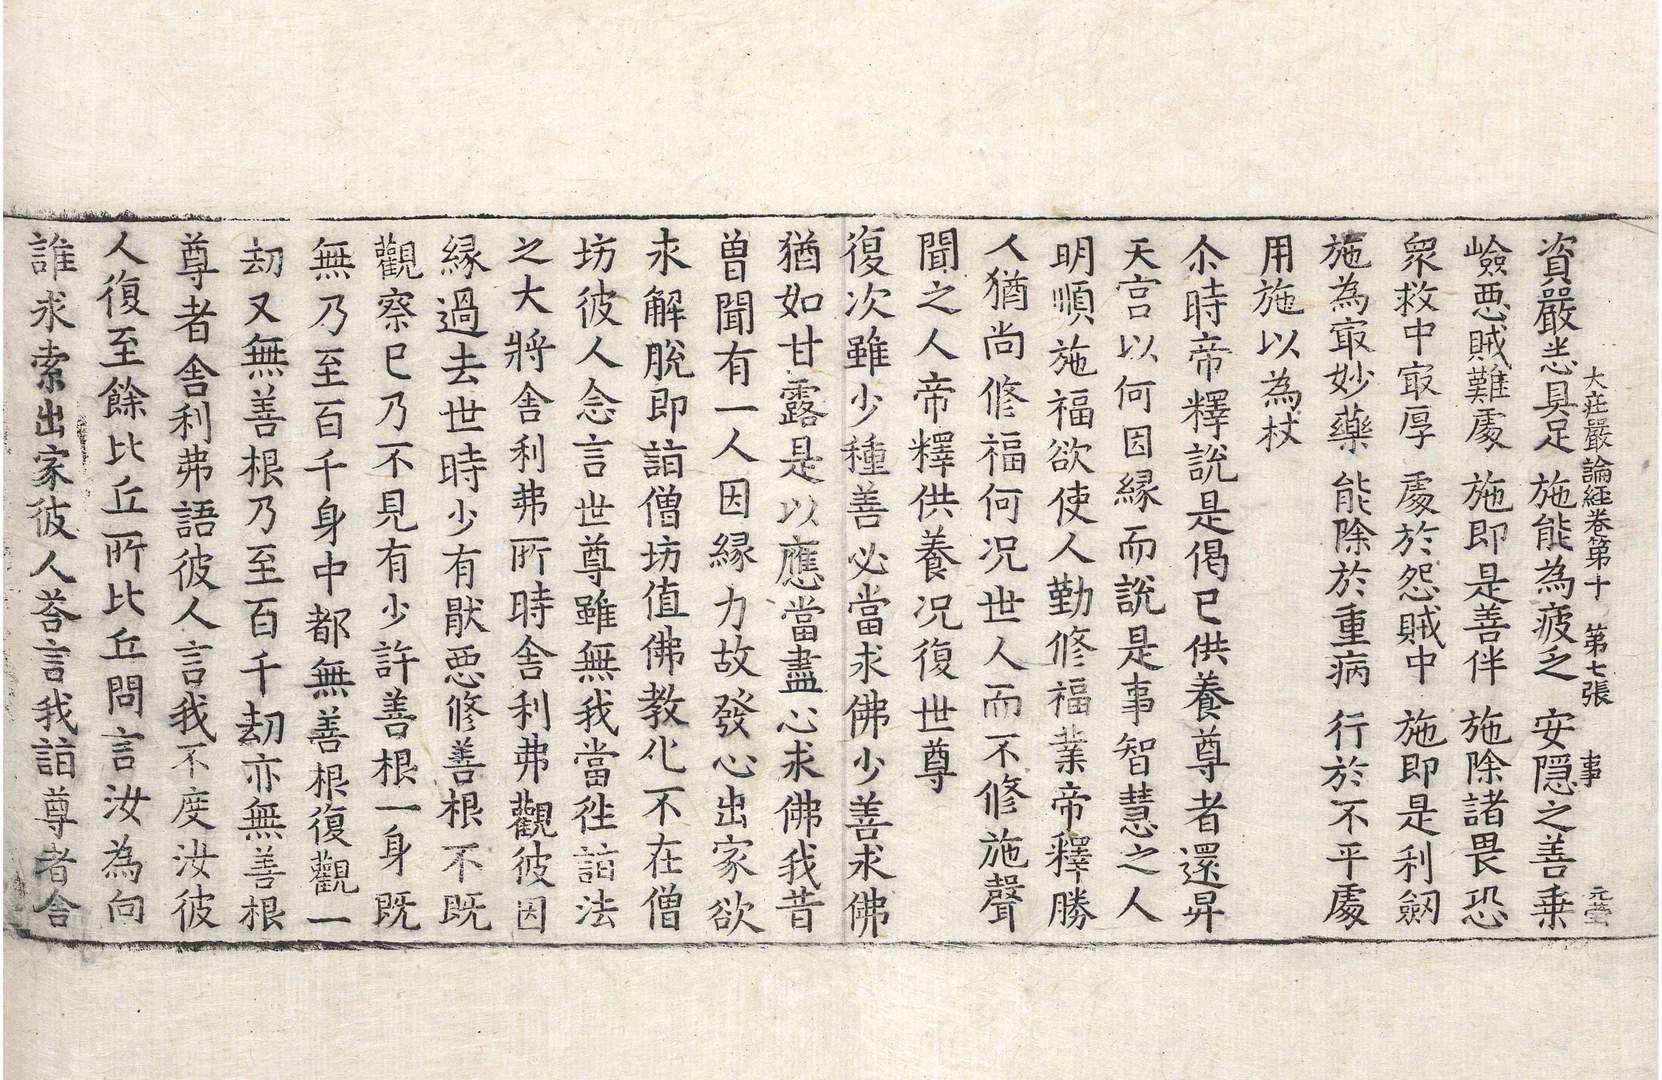 大莊嚴論經卷第十　第七張　事　元瑩
資嚴悉具足　施能為疲乏　安隱之善乗
嶮惡賊難處　施即是善伴　施除諸畏恐
衆救中㝡厚　處於怨賊中　施即是利劒
施為㝡妙藥　能除於重病　行於不平處
用施以為杖
尒時帝釋說是偈已供養尊者還昇
天宫以何因縁而說是事智慧之人
明順施福欲使人勤修福業帝釋勝
人猶尚修福何况世人而不修施聲
聞之人帝釋供養况復世尊
復次雖少種善必當求佛少善求佛
猶如甘露是以應當盡心求佛我昔
曽聞有一人因縁力故發心出家欲
求解脫即詣僧坊值佛教化不在僧
坊彼人念言世尊雖無我當往詣法
之大將舎利弗所時舎利弗觀彼因
縁過去世時少有猒惡修善根不既
觀察已乃不見有少許善根一身既
無乃至百千身中都無善根復觀一
刧又無善根乃至百千刧亦無善根
尊者舎利弗語彼人言我不度汝彼
人復至餘比丘所比丘問言汝為向
誰求索出家彼人荅言我詣尊者舎